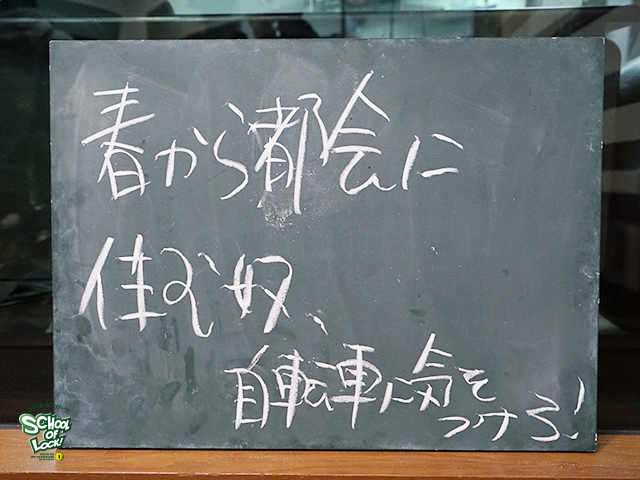 春から都会に
住む奴、
自転車に気を
つけろ!
SCHOOL
OF
LOCK!